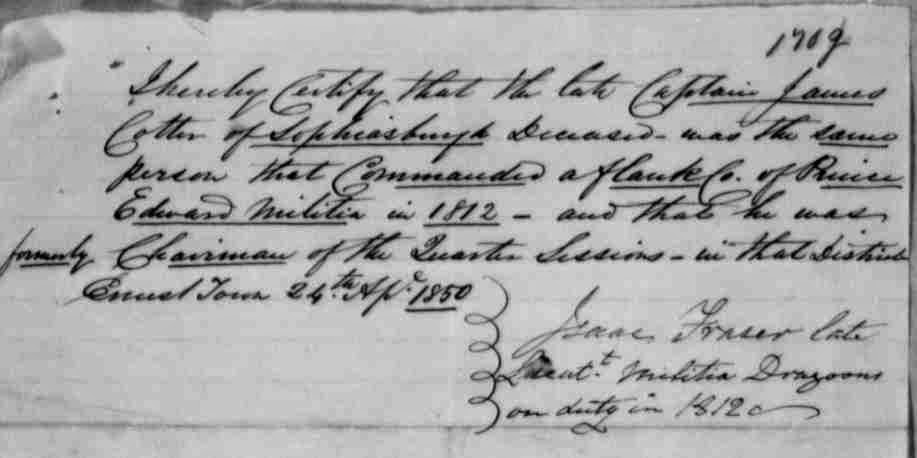 1709
I hereby Certify that the late Captain James
Cotter of Sophiasburgh Deceased - was the same
person that Commanded a flank Co. of Prince
Edward Militia in 1812 - and that he was
formerly Chairman of the Quarter Sessions - in that District
Ernest Town 24th Apl. 1850
Isaac Fraser late
Lieutt. Militia Dragoons
on duty in 1812